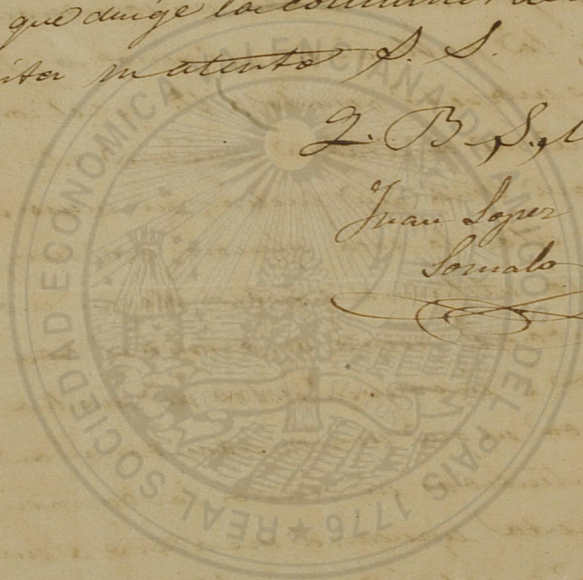 que dirige la
su atento S. S.
Q. B. S.
Juan Lopez
Somalo
REAL SOCIEDAD ECONOMICA VALENCIANA DE AMIGOS DEL PAIS 1776